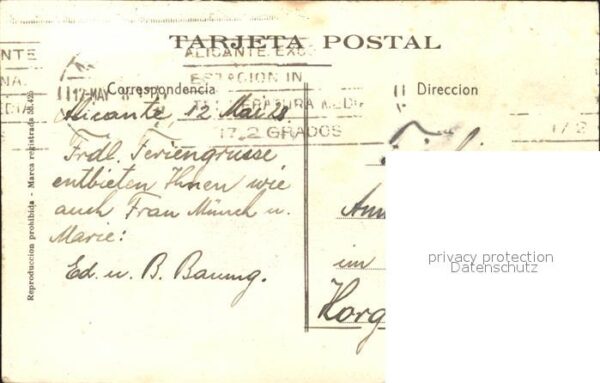 TARJETA POSTAL
ALICANTE
ESTACION IN
17,2 GRADOS
12 MAY
Correspondencia
Direccion
Alicante, 12 Mai 28.
Frdl. Feriengrüsse
entbieten Ihnen wie
auch Frau Münch u.
Marie:
Ed. u. B. Baumg.
im
Horg
Reproduccion prohibida - Marca registrada
privacy protection
Datenschutz